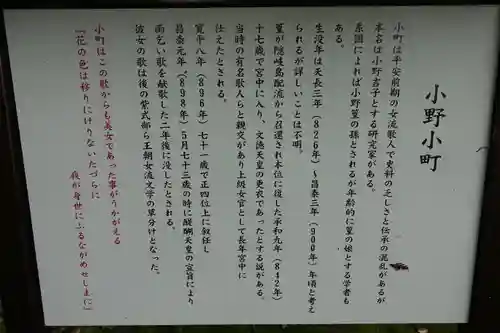 小野小町
小町は平安前期の女流歌人で史料の乏しさと伝承の混乱があるが
本名は小野吉子とする研究家がある。
系図によれば小野篁の孫とされるが年齢的に篁の娘とする学者も
ある。
生没年は天長三年(826年)〜昌泰三年(900年)年頃と考え
られるが詳しいことは不明。
篁が隠岐島配流から召還され本位に復した承和九年(842年)
十七歳で宮中に入り、文徳天皇の更衣であったとする説がある。
当時の有名歌人らと親交があり上級女官として長年宮中に
仕えたとされる。
寛平八年(896年)七十一歳で正四位上に叙任し
昌泰元年(898年)5月七十三歳の時に醍醐天皇の宣旨により
雨乞い歌を献歌した二年後に没したとされる。
彼女の歌は後の紫式部ら王朝女流文学の草分けとなった。
小町はこの歌からも美女であった事がうかがえる
『花の色は移りにけりないたづらに
我が身世にふるながめせしまに』